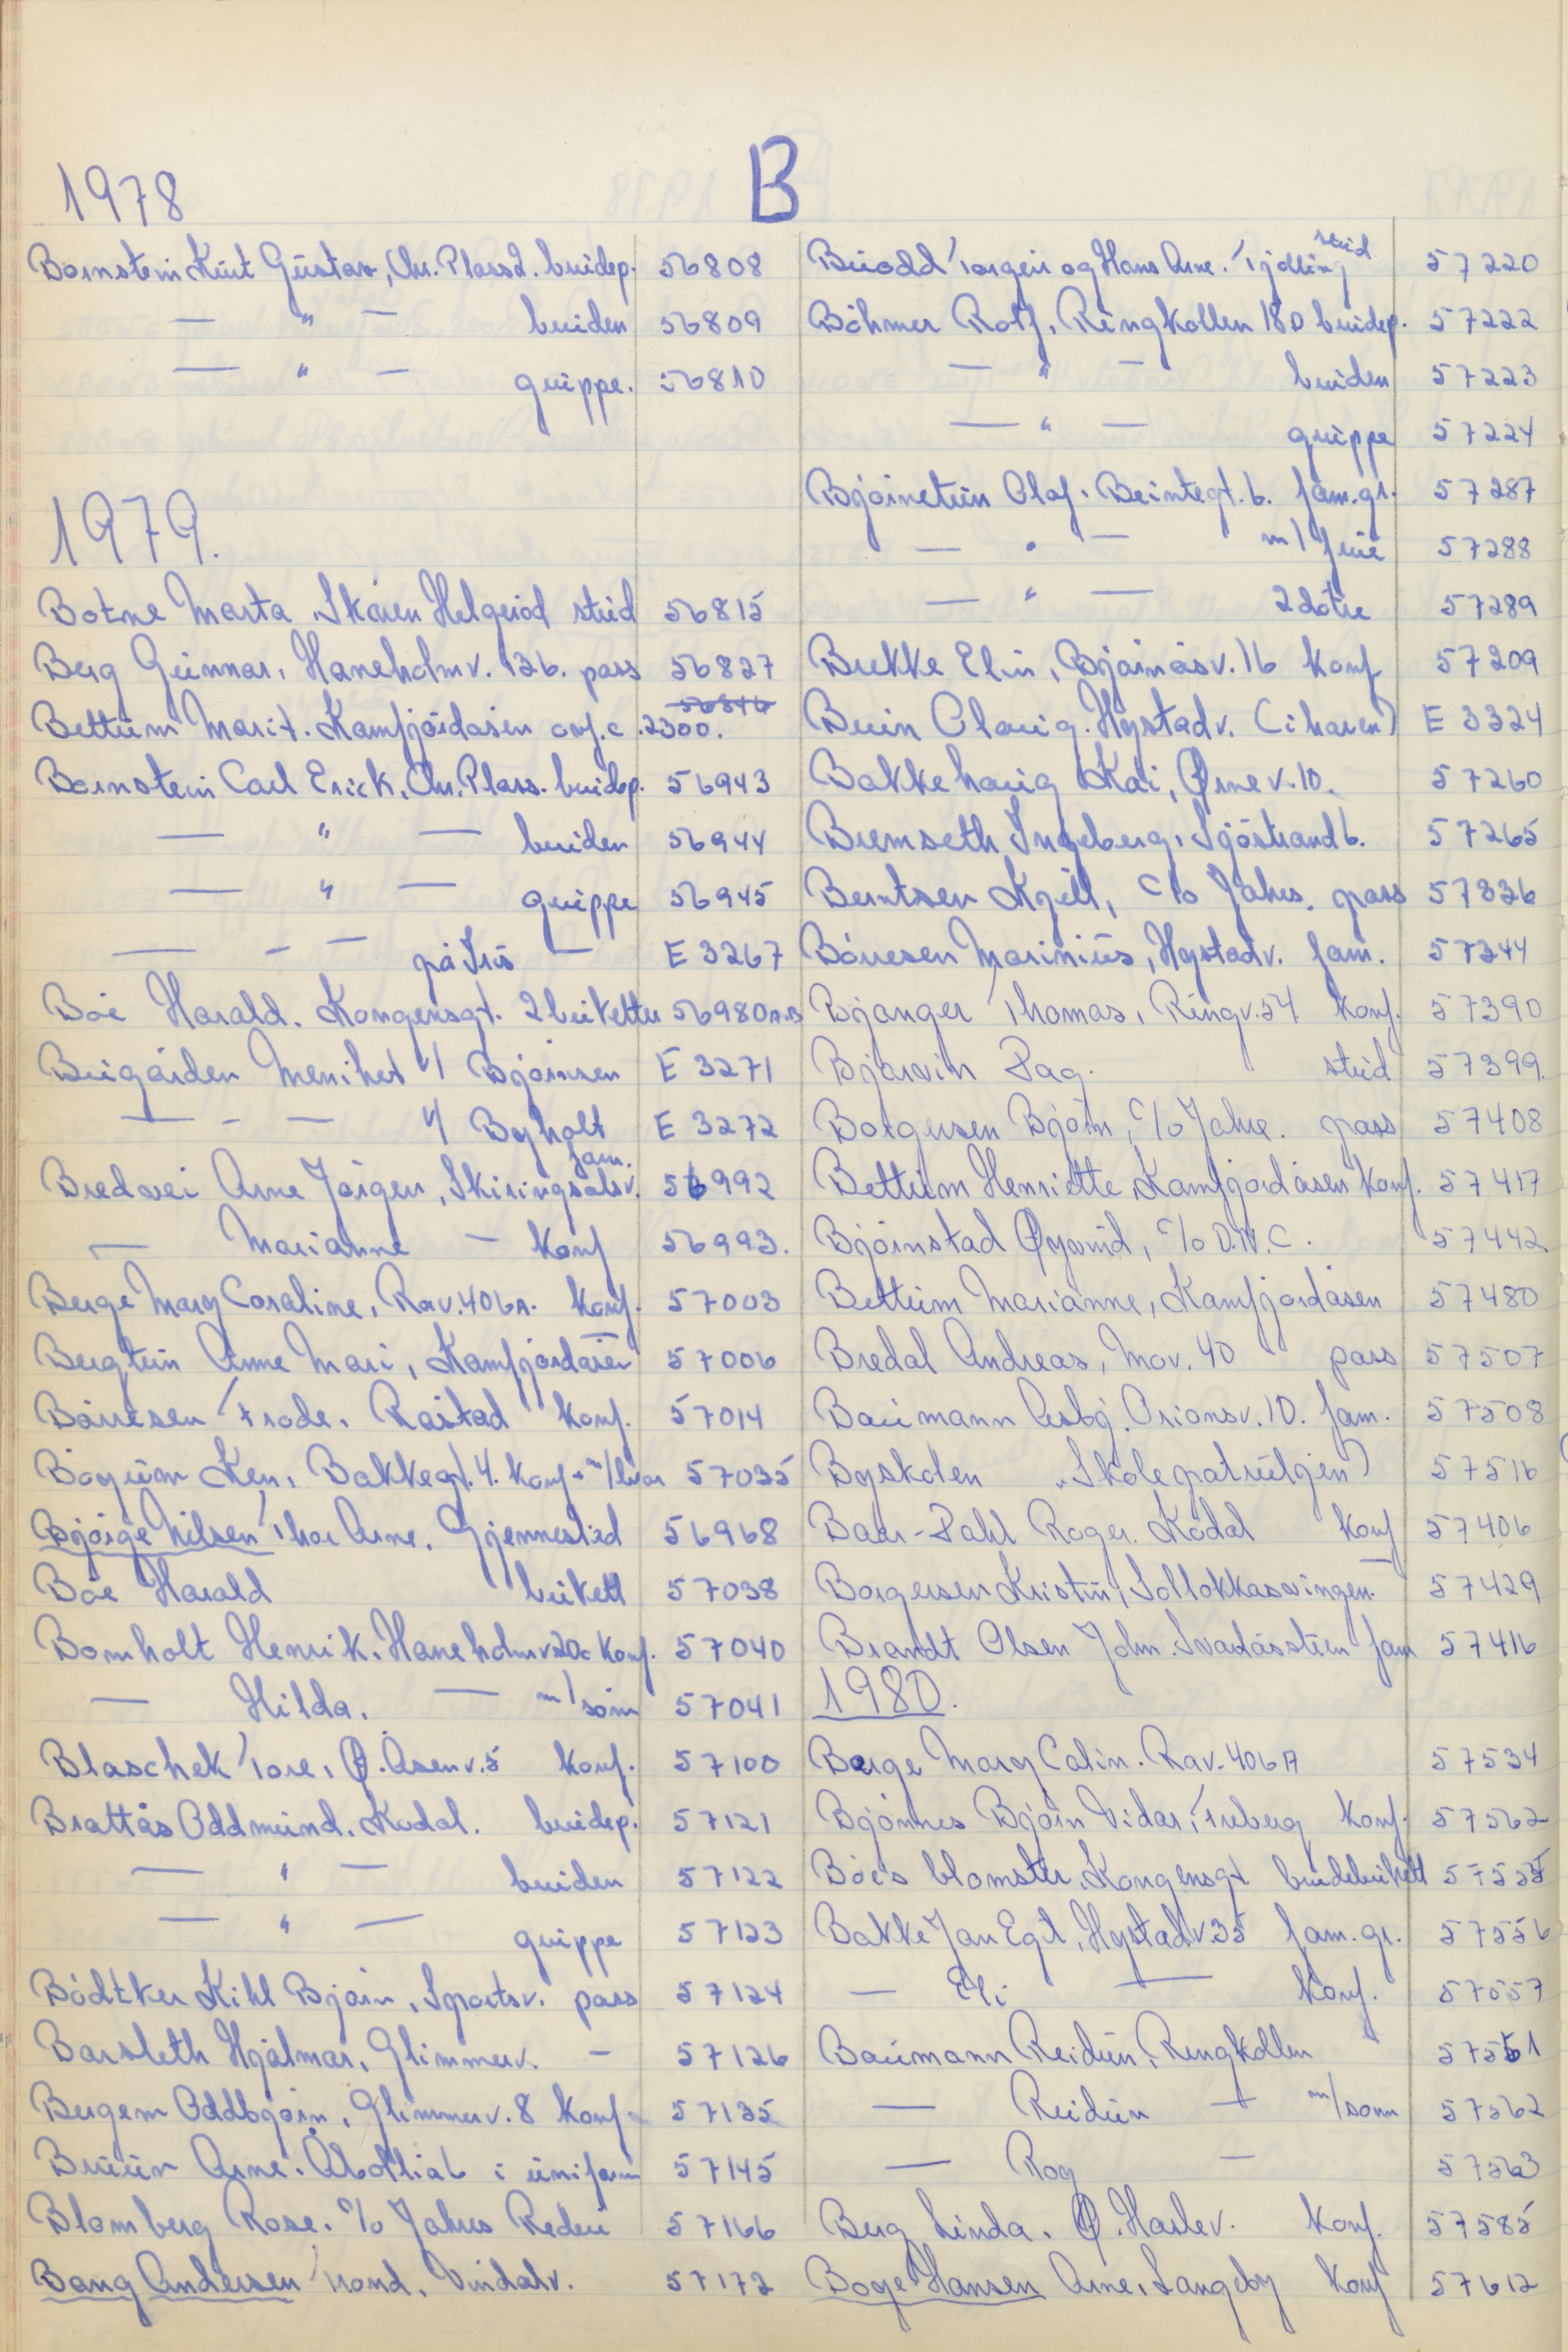 B
1978
Bornstein Kurt Gustav, Chr. Plass 2. brudep. 56808
— " — bruden 56809
— " — gruppe. 56810
1979.
Botne Marta Skåren Helgerød stud 56815
Berg Gunnar, Haneholmv. 13b. pass 56827
Bettum Marit. Kamfjordåsen 56846 2300.
Bornstein Carl Erick, Chr. Plass. brudep. 56943
— " — bruden 56944
— " — gruppe 56945
— - — på Iris — E 3267
Bøe Harald. Kongensgt. 2 buketter 56980A.B
Brugården Menihet v/ Bjørnsen E 3271
— - — v/ Byholt E 3272
Bredvei Arne Jørgen, Skiringsalsv. fam. 56992
— Marianne — konf 56993.
Berge Mary Coraline, Rav. 40bA. konf. 57003
Bergtun Anne Mari, Kamfjordåsen 57006
Børresen Frode. Råstad konf. 57014
Bøyum Ken, Bakkegt. 4. konf + m/bror 57035
Bjørge Nilsen Thor Arne. Gjennestad 56968
Bøe Harald bukett 57038
Bomholt Henrik. Haneholmv 20c konf. 57040
— Hilda. — m/sønn 57041
Blaschek Tore, Ø. Åsenv. 5 konf. 57100
Brattås Oddmund. Kodal. brudep. 57121
— " — bruden 57122
— " — gruppe 57123
Bødtker Kihl Bjørn, Sportsv. pass 57124
Barsleth Hjalmar, Glimmerv. — 57126
Bergem Oddbjørn, Glimmerv. 8 konf. 57135
Bruun Arne. i uniform 57145
Blomberg Rose. c/o Jahres Rederi 57166
Bang Andersen Trond. Vindalv. 57172
Buodd Torgeir og Hans Arne. Tjølling stud 57220
Böhmer Rolf, Ringkollen 18D brudep. 57222
— " — bruden 57223
— " — gruppe 57224
Bjørnetun Olaf, Beintegt. 6. fam.gr. 57287
— " — m/frue 57288
— " — 2 døtre 57289
Brekke Elin, Bjørnåsv. 16 konf 57209
Bruin Olaug. Hystadv. (i haven) E 3324
Bakkehaug Kai, Ørnev. 10. 57260
Bremseth Ingeborg, Sjøstrand 6. 57265
Berntsen Kjell, c/o Jahres. pass 57336
Børresen Marinius, Hystadv. fam. 57344
Bjanger Thomas, Ringv. 54 konf. 57390
Bjarvin Dag. stud 57399.
Borgersen Bjørn, c/o Jahre. pass 57408
Bettum Henriette, Kamfjordåsen konf. 57417
Bjørnstad Øyvind, c/o D.N.C. 57442
Bettum Marianne, Kamfjordåsen 57480
Bredal Andreas, Mov. 40 pass 57507
Baumann Asbj. Orionsv. 10. fam. 57508
Byskolen "Skolepatruljen) 57516
Baer-Dahl Roger. Kodal konf 57406
Borgersen Kristin, Solløkkasvingen. 57429
Brandt Olsen John. Svartåsstien fam 57416
1980.
Berge Mary Calin. Rav. 40bA 57534
Bjønnes Bjørn Vidar, Freberg konf. 57562
Bøe's blomster. Kongensgt brudebukett 57555
Bakke Jan Egil, Hystadv. 35 fam.gr. 57556
— Eli — konf. 57557
Baumann Reidun, Ringkollen 57561
— Reidun — m/sønn 57562
— Roy — 57563
Berg Linda. Ø. Haslev. konf. 57585
Boye Hansen Arne, Langeby konf 57612